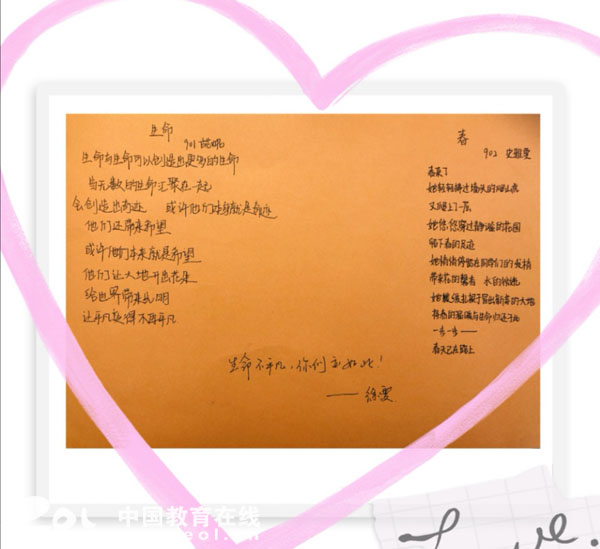 生命
901
生命与生命可以创造出更多的生命
当无数的生命汇聚在一起
会创造出奇迹 或许他们本身就是奇迹
他们还带来希望
或许他们本来就是希望
他们让大地开出花朵
给世界带来光明
让平凡变得不再平凡
春
902 史雅雯
春来了
她轻轻拂过墙头的
又爬上了
她悠悠穿过静谧的花园
留下春的足迹
她悄悄停留在同学们的
带来花的馨香 水的
她
将春的温暖与生命归还于此
一步一步——
春天已在路上
生命不平凡,你们亦如此!
——徐雯
中国教育在线
eol.cn
Love.